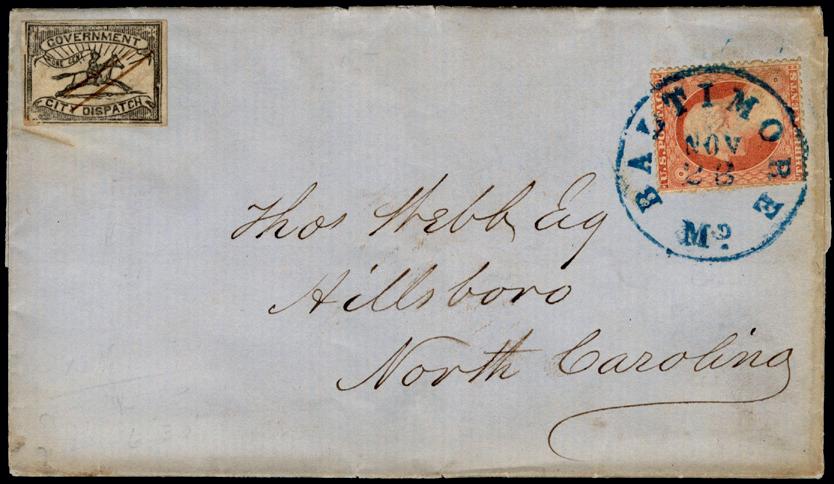 GOVERNMENT
ONE CENT
CITY DISPATCH
U.S. POSTAGE
BALTIMORE
NOV
28
Md.
Thos Webb, Esq
Hillsboro
North Carolina